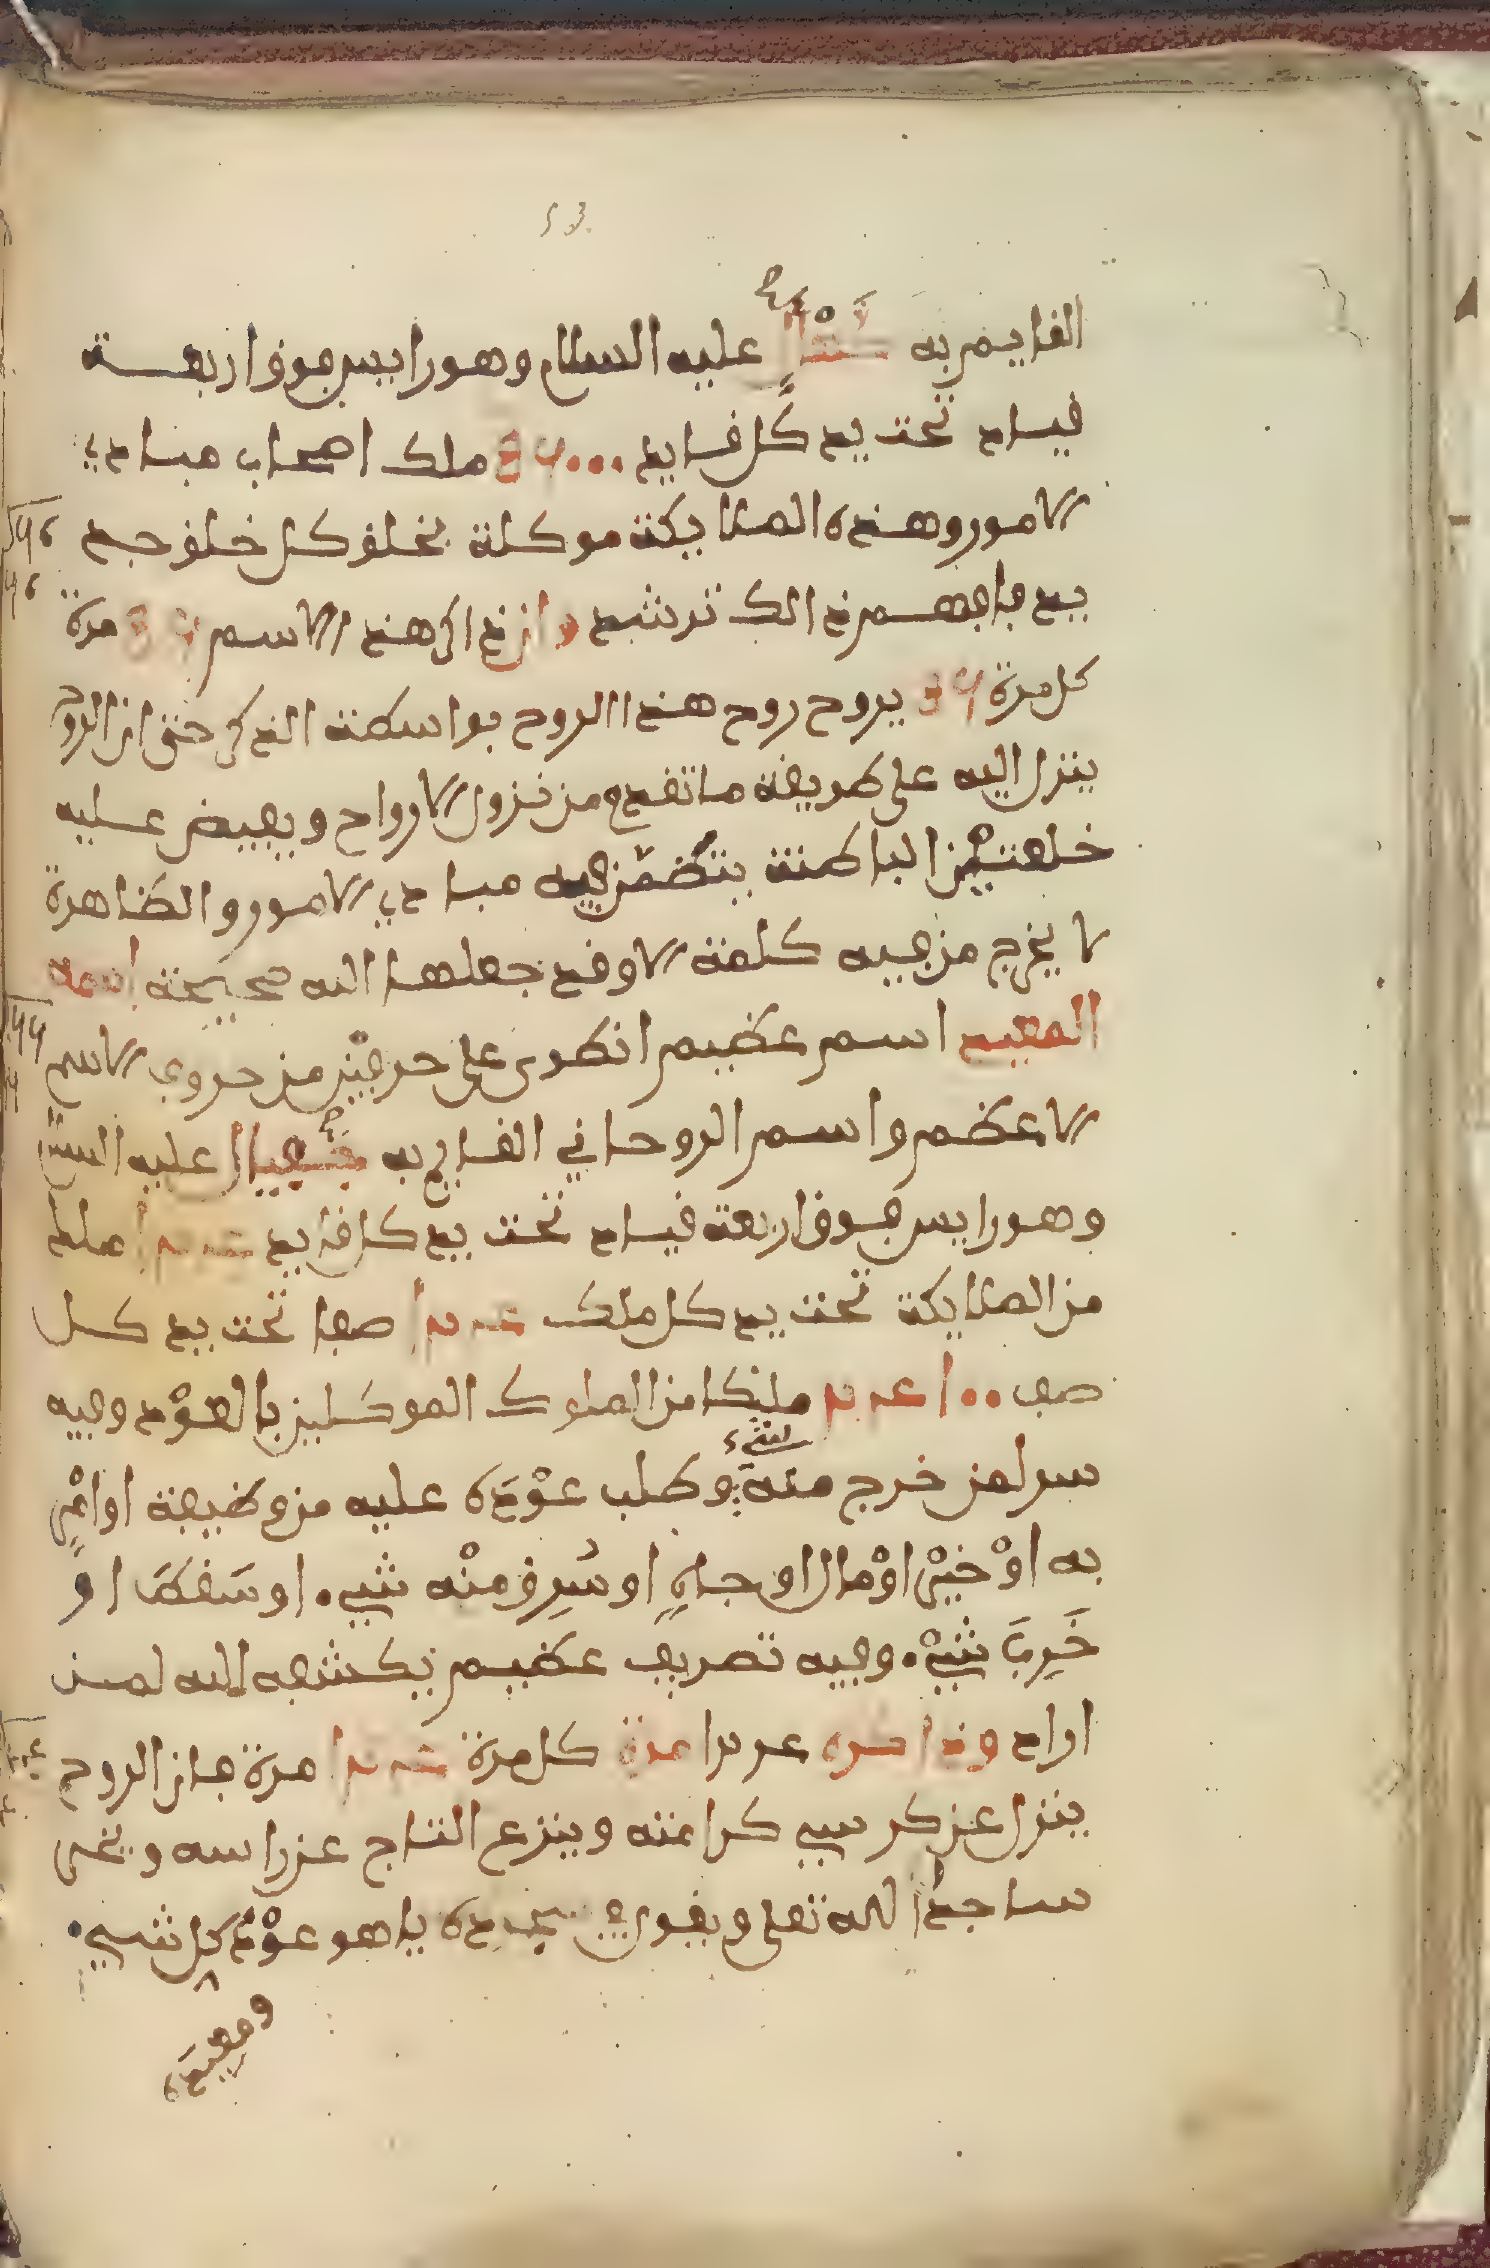 القايم به عليه السلام وهو رايس فوق اربعة
قياد تحت يد كل قايد ملك اصحاب مبادي
الامور وهذه الملايكة موكلة بخلق كل خلق جديد
بيد فافهم ذالك ترشد وان ذاكر هذا الاسم مرة
كل مرة يروح روح هذا الروح بواسطة الذكر حتى ان الروح
ينزل اليه على طريقة ما تقدم من نزول الارواح ويفيض عليه
خلعتين الباطنة يتضمن فيه مبادي الامور والظاهرة
لا يخرج من فيه كلمة الا وقد جعلها الله صحيحة اسمه
المعيد اسم عظيم انطوى على حرفين من حروف الاسم
الاعظم واسم الروحاني القايم به عليه السلام
وهو رايس فوق اربعة قياد تحت يد كل قايد ملكا
من الملايكة تحت يد كل ملك صفا تحت يد كل
صف ملكا من الملوك الموكلين بالعود وفيه
سر لمن خرج منه شيء وطلب عوده عليه من وظيفة او امر
به او خير او مال او جاه او سرق منه شيء او سقط او
خرب شيء وفيه تصريف عظيم يكشفه الله لمن
اراد وذاكره مرة كل مرة مرة فان الروح
ينزل عن كرسي كرامته وينزع التاج عن راسه ويخر
ساجدا لله تعلى ويقول في سجوده يا هو عود كل شيء
ومعيده